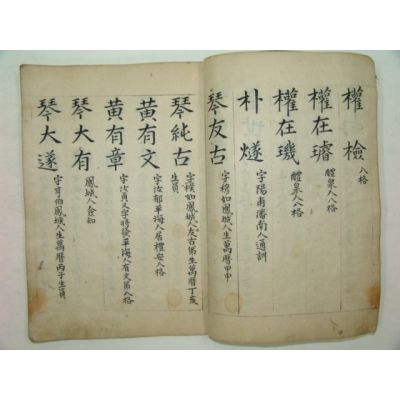 權 檢 八格
權在璿 醴泉人八格
權在璣 醴泉人八格
朴燧 字陽甫潘南人通訓
琴友古 字穆如鳳城人生萬曆甲申
琴純古 字穆如鳳城人友古弟生萬曆丁亥
生員
黄有文 字汝郁平海人居禮安八格
黄有章 字汝貞文字時發平海人有文弟八格
琴大有 鳳城人僉知
琴大遂 字亨伯鳳城人生萬曆丙子生員